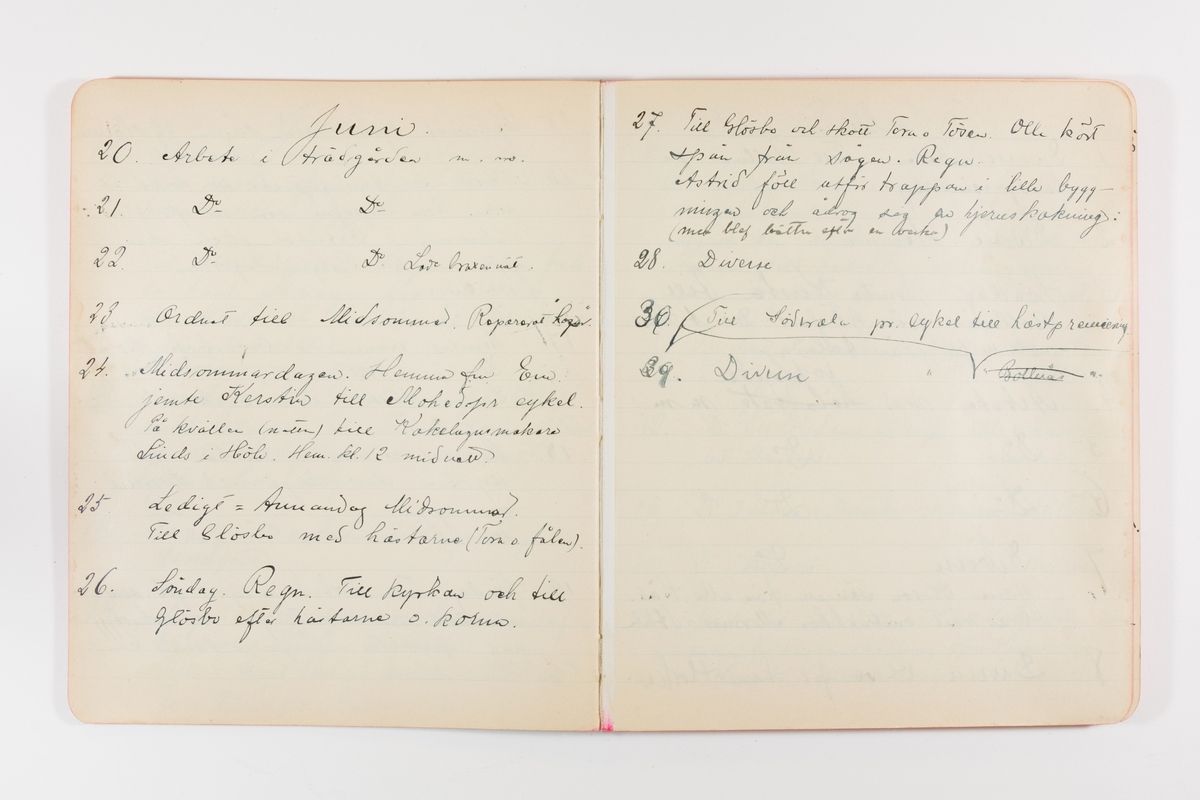 Juni.
20. Arbete i trädgården m. m.
21 Do Do
22. Do Do Lade braxennät.
23 Ordnat till Midsommar. Reparerat
24. Midsommardagen. Hemma fm Em.
jemte Kerstin till Mohed pr cykel.
På kvällen (natten) till Kakelugnsmakare
Linds i Höle. Hem. kl. 12 midnatt.
25 Ledigt = Annandag Midsommar.
Till Glösbo med hästarne (Tora o fålen).
26. Söndag. Regn. Till kyrkan och till
Glösbo efter hästarne o. korna.
27. Till Glösbo och skott Tora o Tösen. Olle kört
spån från sågen. Regn.
Astrid föll utför trappan i lilla bygg-
ningen och ådrog sig en hjernskakning:
(men blef bättre efter en vecka)
28. Diverse
30. Till Söderala pr cykel till hästpremiering
29. Diverse " " Bollnäs "